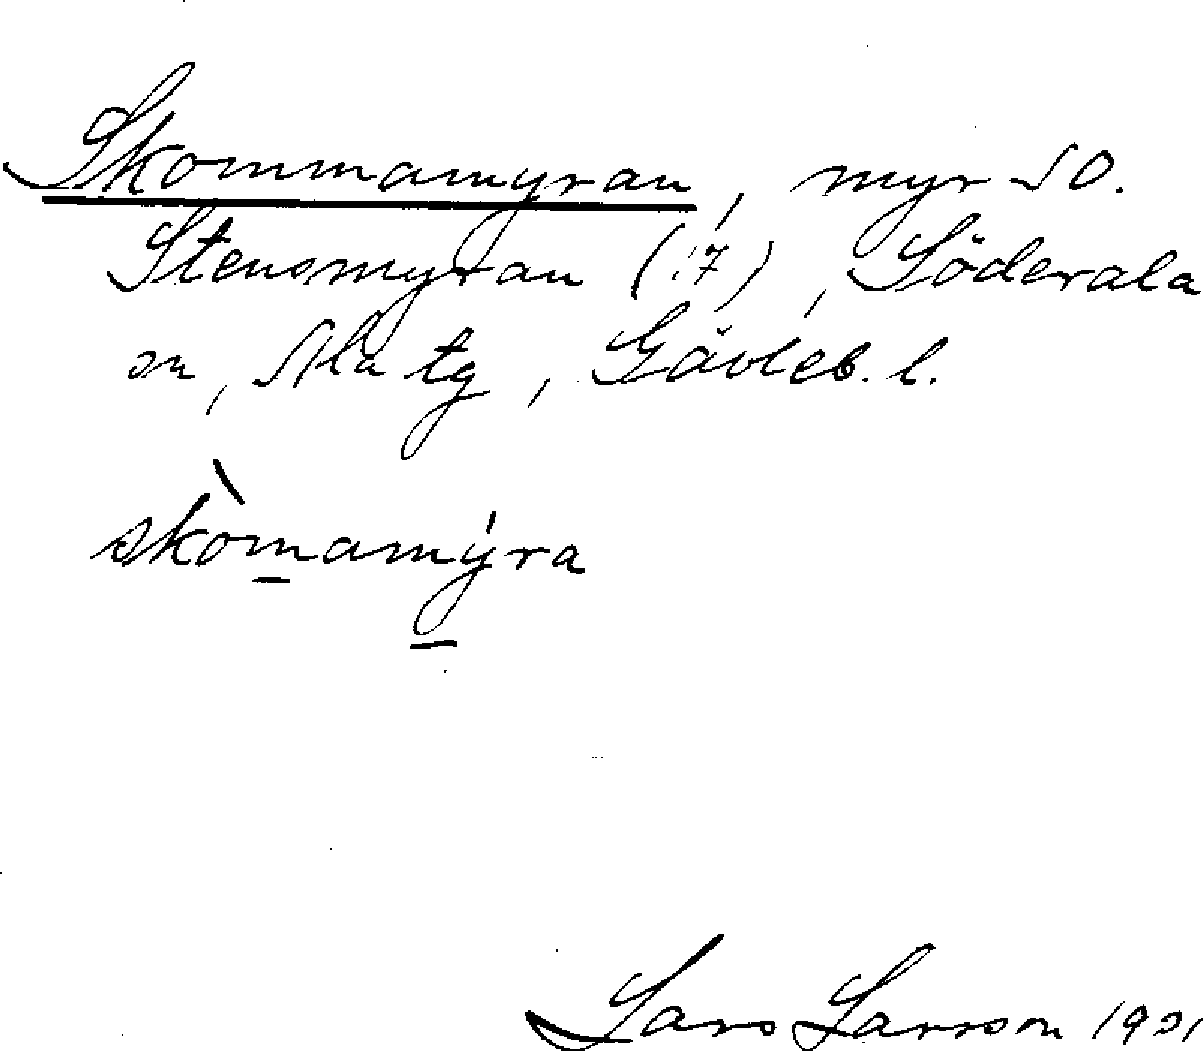 Skommamyran, myr SO.
Stensmyran (17), Söderala
sn, Ala tg, Gävleb. l.
skòmamýra
Lars Larsson 1931